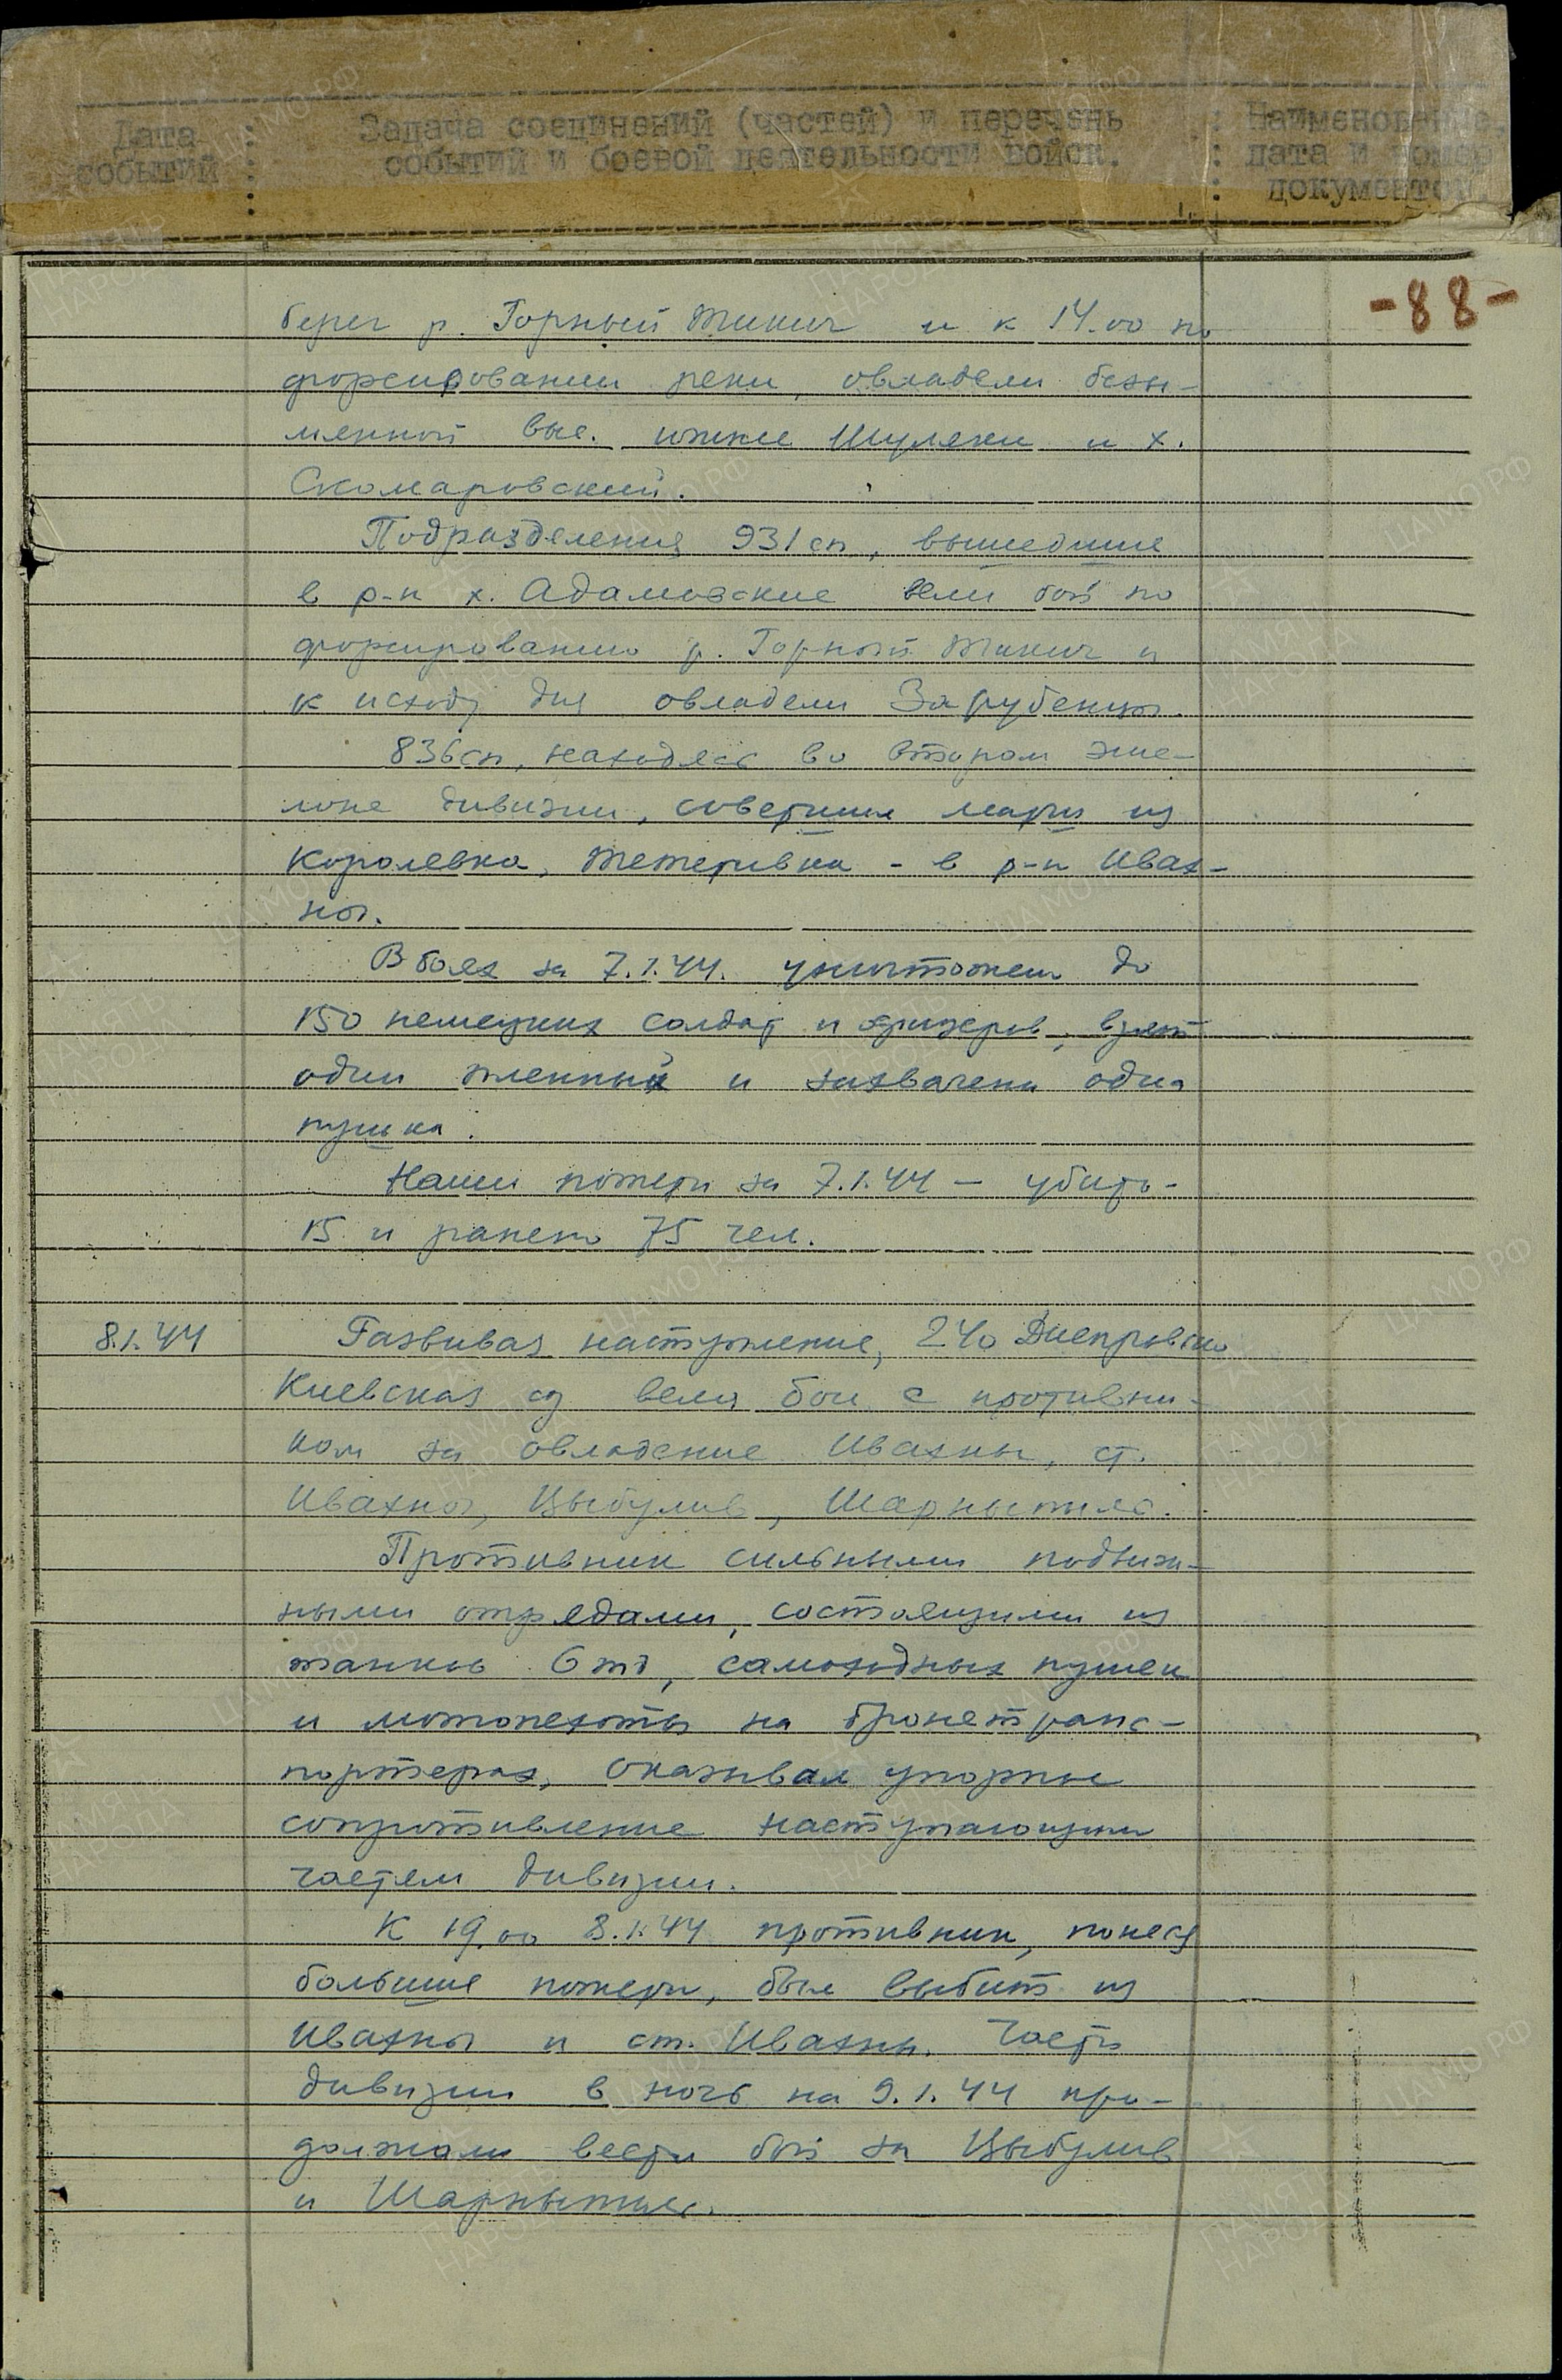 Дата событий : Задача соединений (частей) и перечень событий и боевой деятельности войск. : Наименование, дата и номер документов.
-88-
берег р. Горный Тикич и к 14.00 по
форсировании реки, овладели безы-
мянной выс. южнее Шуляки и х.
Скомаровский.
Подразделения 931 сп, вышедшие
в р-н х. Адамовские вели бой по
форсированию р. Горный Тикич и
к исходу дня овладели Зарубенцы.
836 сп, находясь во втором эше-
лоне дивизии, совершил марш из
Королевка, Тетеривка - в р-н Ивах-
ны.
В боях за 7.1.44. уничтожен до
150 немецких солдат и офицеров, взят
один пленный и захвачена одна
пушка.
Наши потери за 7.1.44 - убито-
15 и ранено 75 чел.
8.1.44 Развивая наступление, 240 Днепровско
Киевская сд вела бои с противни-
ком за овладение Ивахны, ст.
Ивахны, Цыбулив, Шарныпиль.
Противник сильными подвиж-
ными отрядами, состоящими из
танков 6 тд, самоходных пушек
и мотопехоты на бронетранс-
портерах, оказывал упорное
сопротивление наступающим
частям дивизии.
К 19.00 8.1.44 противник, понеся
большие потери, был выбит из
Ивахны и ст. Ивахны. Части
дивизии в ночь на 9.1.44 про-
должали вести бой за Цыбулив
и Шарныпиль.